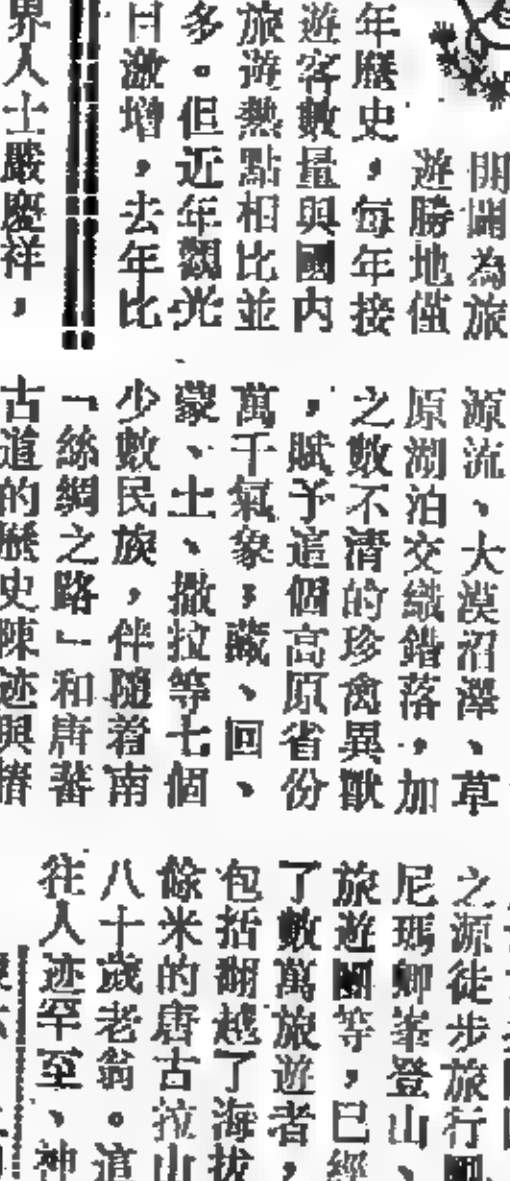 開闢為旅
遊勝地僅
年歷史，每年接
遊客數量與國內
旅遊熱點相比並
多。但近年觀光
日激增，去年比
界人士嚴慶祥，
源流、大漠沼澤、草
原湖泊交織錯落，加
之數不清的珍禽異獸
，賦予這個高原省份
萬千氣象；藏、回、
蒙、土、撒拉等七個
少數民族，伴隨着南
「絲綢之路」和唐蕃
古道的歷史陳迹與
之源徒步旅行
尼瑪卿峯登山、
旅遊團等，已經
了數萬旅遊者，
包括翻越了海拔
餘米的唐古拉山
八十歲老翁。這
往人迹罕至、神